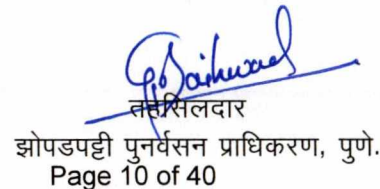 तहसिलदार
झोपडपट्टी पुनर्वसन प्राधिकरण, पुणे.
Page 10 of 40